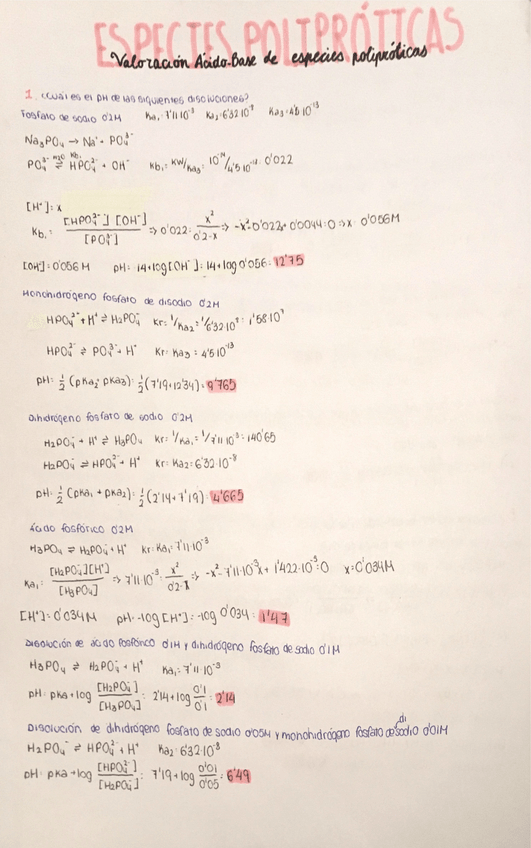 ESPECIES POLIPRÓTICAS
Valoración Ácido-Base de especies polipróticas
1. ¿Cuál es el pH de las siguientes disoluciones?
Fosfato de sodio 0'2M Ka₁: 7'11·10⁻³ Ka₂: 6'32·10⁻⁸ Ka₃: 4'5·10⁻¹³
Na₃PO₄ → Na⁺ + PO₄³⁻
PO₄³⁻ ⇌ HPO₄²⁻ + OH⁻ Kb₁ = KW/Ka₃ = 10⁻¹⁴/4'5·10⁻¹³ = 0'022
[H⁺] = x
Kb₁ = [HPO₄²⁻][OH⁻]/[PO₄³⁻] ⇒ 0'022 = x²/0'2-x ⇒ -x²-0'022x+0'0044=0 ⇒ x = 0'056M
[OH⁻] = 0'056M pH = 14+log[OH⁻] = 14+log 0'056 = 12'75
Monohidrógeno fosfato de disodio 0'2M
HPO₄²⁻ + H⁺ ⇌ H₂PO₄⁻ Kr = 1/Ka₂ = 1/6'32·10⁻⁸ = 1'58·10⁷
HPO₄²⁻ ⇌ PO₄³⁻ + H⁺ Kr = Ka₃ = 4'5·10⁻¹³
pH = ½(pKa₂ + pKa₃) = ½(7'19+12'34) = 9'765
Dihidrógeno fosfato de sodio 0'2M
H₂PO₄⁻ + H⁺ ⇌ H₃PO₄ Kr = 1/Ka₁ = 1/7'11·10⁻³ = 140'65
H₂PO₄⁻ ⇌ HPO₄²⁻ + H⁺ Kr = Ka₂ = 6'32·10⁻⁸
pH = ½(pKa₁ + pKa₂) = ½(2'14+7'19) = 4'665
Ácido fosfórico 0'2M
H₃PO₄ ⇌ H₂PO₄⁻ + H⁺ Kr = Ka₁ = 7'11·10⁻³
Ka₁ = [H₂PO₄⁻][H⁺]/[H₃PO₄] ⇒ 7'11·10⁻³ = x²/0'2-x ⇒ -x²-7'11·10⁻³x + 1'422·10⁻³=0 x = 0'034M
[H⁺] = 0'034M pH = -log[H⁺] = -log 0'034 = 1'47
Disolución de ácido fosfórico 0'1M y dihidrógeno fosfato de sodio 0'1M
H₃PO₄ ⇌ H₂PO₄⁻ + H⁺ Ka₁ = 7'11·10⁻³
pH = pKa + log [H₂PO₄⁻]/[H₃PO₄] = 2'14 + log 0'1/0'1 = 2'14
Disolución de dihidrógeno fosfato de sodio 0'05M y monohidrógeno fosfato de disodio 0'01M
H₂PO₄⁻ ⇌ HPO₄²⁻ + H⁺ Ka₂ = 6'32·10⁻⁸
pH = pKa + log [HPO₄²⁻]/[H₂PO₄⁻] = 7'19 + log 0'01/0'05 = 6'49